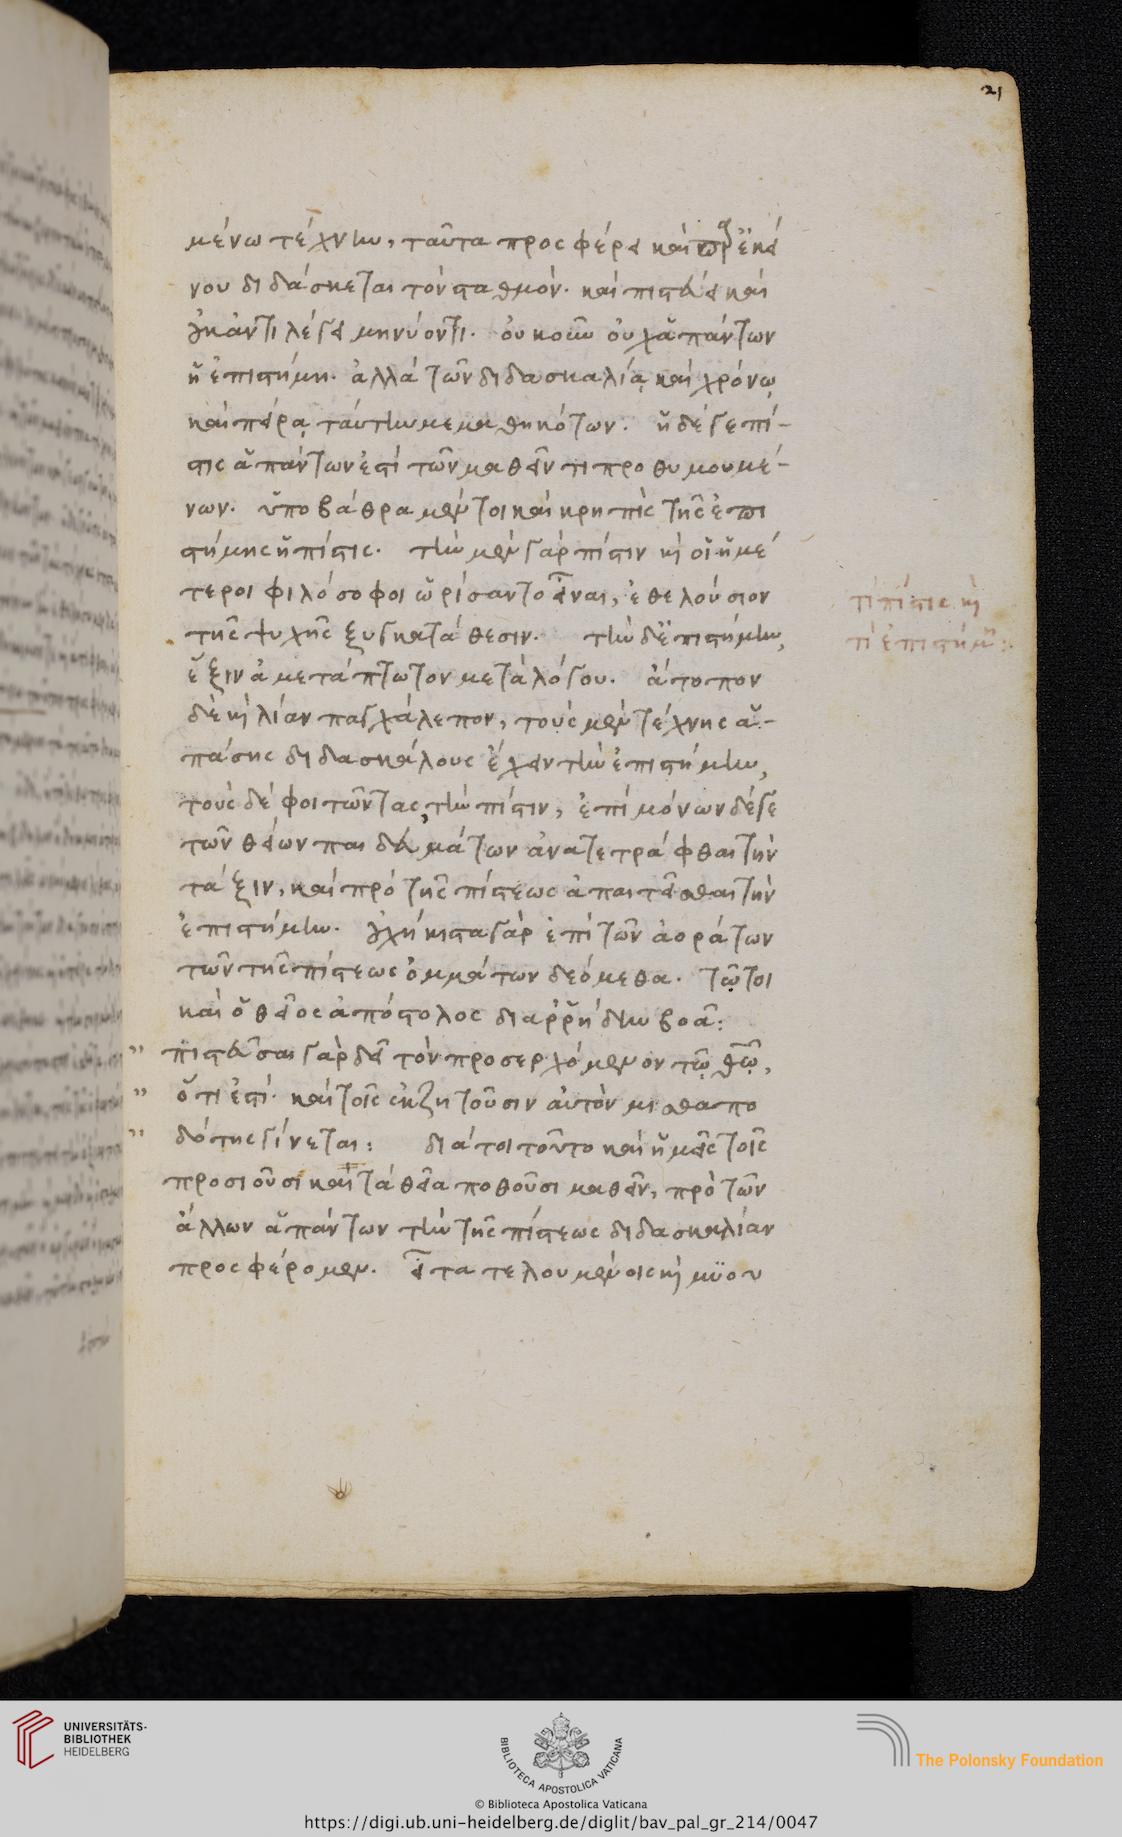 21
μένω τέχνην, ταῦτα προσφέρει καὶ παρ' ἐκεί
νου διδάσκεται τὸν σταθμόν. καὶ πιστεύει καὶ
οὐκ ἀντιλέγει μηνύοντι. οὐκοῦν οὐχ ἁπάντων
ἡ ἐπιστήμη. ἀλλὰ τῶν διδασκαλίᾳ καὶ χρόνῳ
καὶ πείρᾳ ταύτην μεμαθηκότων. ἡ δέ γε πί-
στις ἁπάντων ἐστὶ τῶν μαθεῖν τι προθυμουμέ-
νων. ὑποβάθρα μέντοι καὶ κρηπὶς τῆς ἐπι
στήμης ἡ πίστις. τὴν μὲν γὰρ πίστιν καὶ οἱ ἡμέ
τεροι φιλόσοφοι ὡρίσαντο εἶναι, ἐθελούσιον
τῆς ψυχῆς ξυγκατάθεσιν. τὴν δ' ἐπιστήμην,
ἕξιν ἀμετάπτωτον μετὰ λόγου. ἄτοπον
δὲ καὶ λίαν παγχάλεπον, τοὺς μὲν τέχνης ἁ-
πάσης διδασκάλους ἔχειν τὴν ἐπιστήμην,
τοὺς δὲ φοιτῶντας, τὴν πίστιν, ἐπὶ μόνων δέ γε
τῶν θείων παιδευμάτων ἀνατετράφθαι τὴν
τάξιν, καὶ πρὸ τῆς πίστεως ἀπαιτεῖσθαι τὴν
ἐπιστήμην. οὐχ ἥκιστα γὰρ ἐπὶ τῶν ἀοράτων
τῶν τῆς πίστεως ὀμμάτων δεόμεθα. τῷ τοι
καὶ ὁ θεῖος ἀπόστολος διαρρήδην βοᾶ:
" πιστεῦσαι γὰρ δεῖ τὸν προσερχόμενον τῷ θῶ,
" ὅτι ἐστί. καὶ τοῖς ἐκζητοῦσιν αὐτὸν μισθαπο
" δότης γίνεται: διά τοι τοῦτο καὶ ἡμεῖς τοῖς
προσιοῦσι καὶ τὰ θεῖα ποθοῦσι μαθεῖν, πρὸ τῶν
ἄλλων ἁπάντων τὴν τῆς πίστεως διδασκαλίαν
προσφέρομεν. εἶτα τελουμένοις καὶ μϋου
τί πίστις καὶ
τί ἐπιστήμη:
UNIVERSITÄTS-
BIBLIOTHEK
HEIDELBERG
BIBLIOTECA APOSTOLICA VATICANA
© Biblioteca Apostolica Vaticana
The Polonsky Foundation
https://digi.ub.uni-heidelberg.de/diglit/bav_pal_gr_214/0047